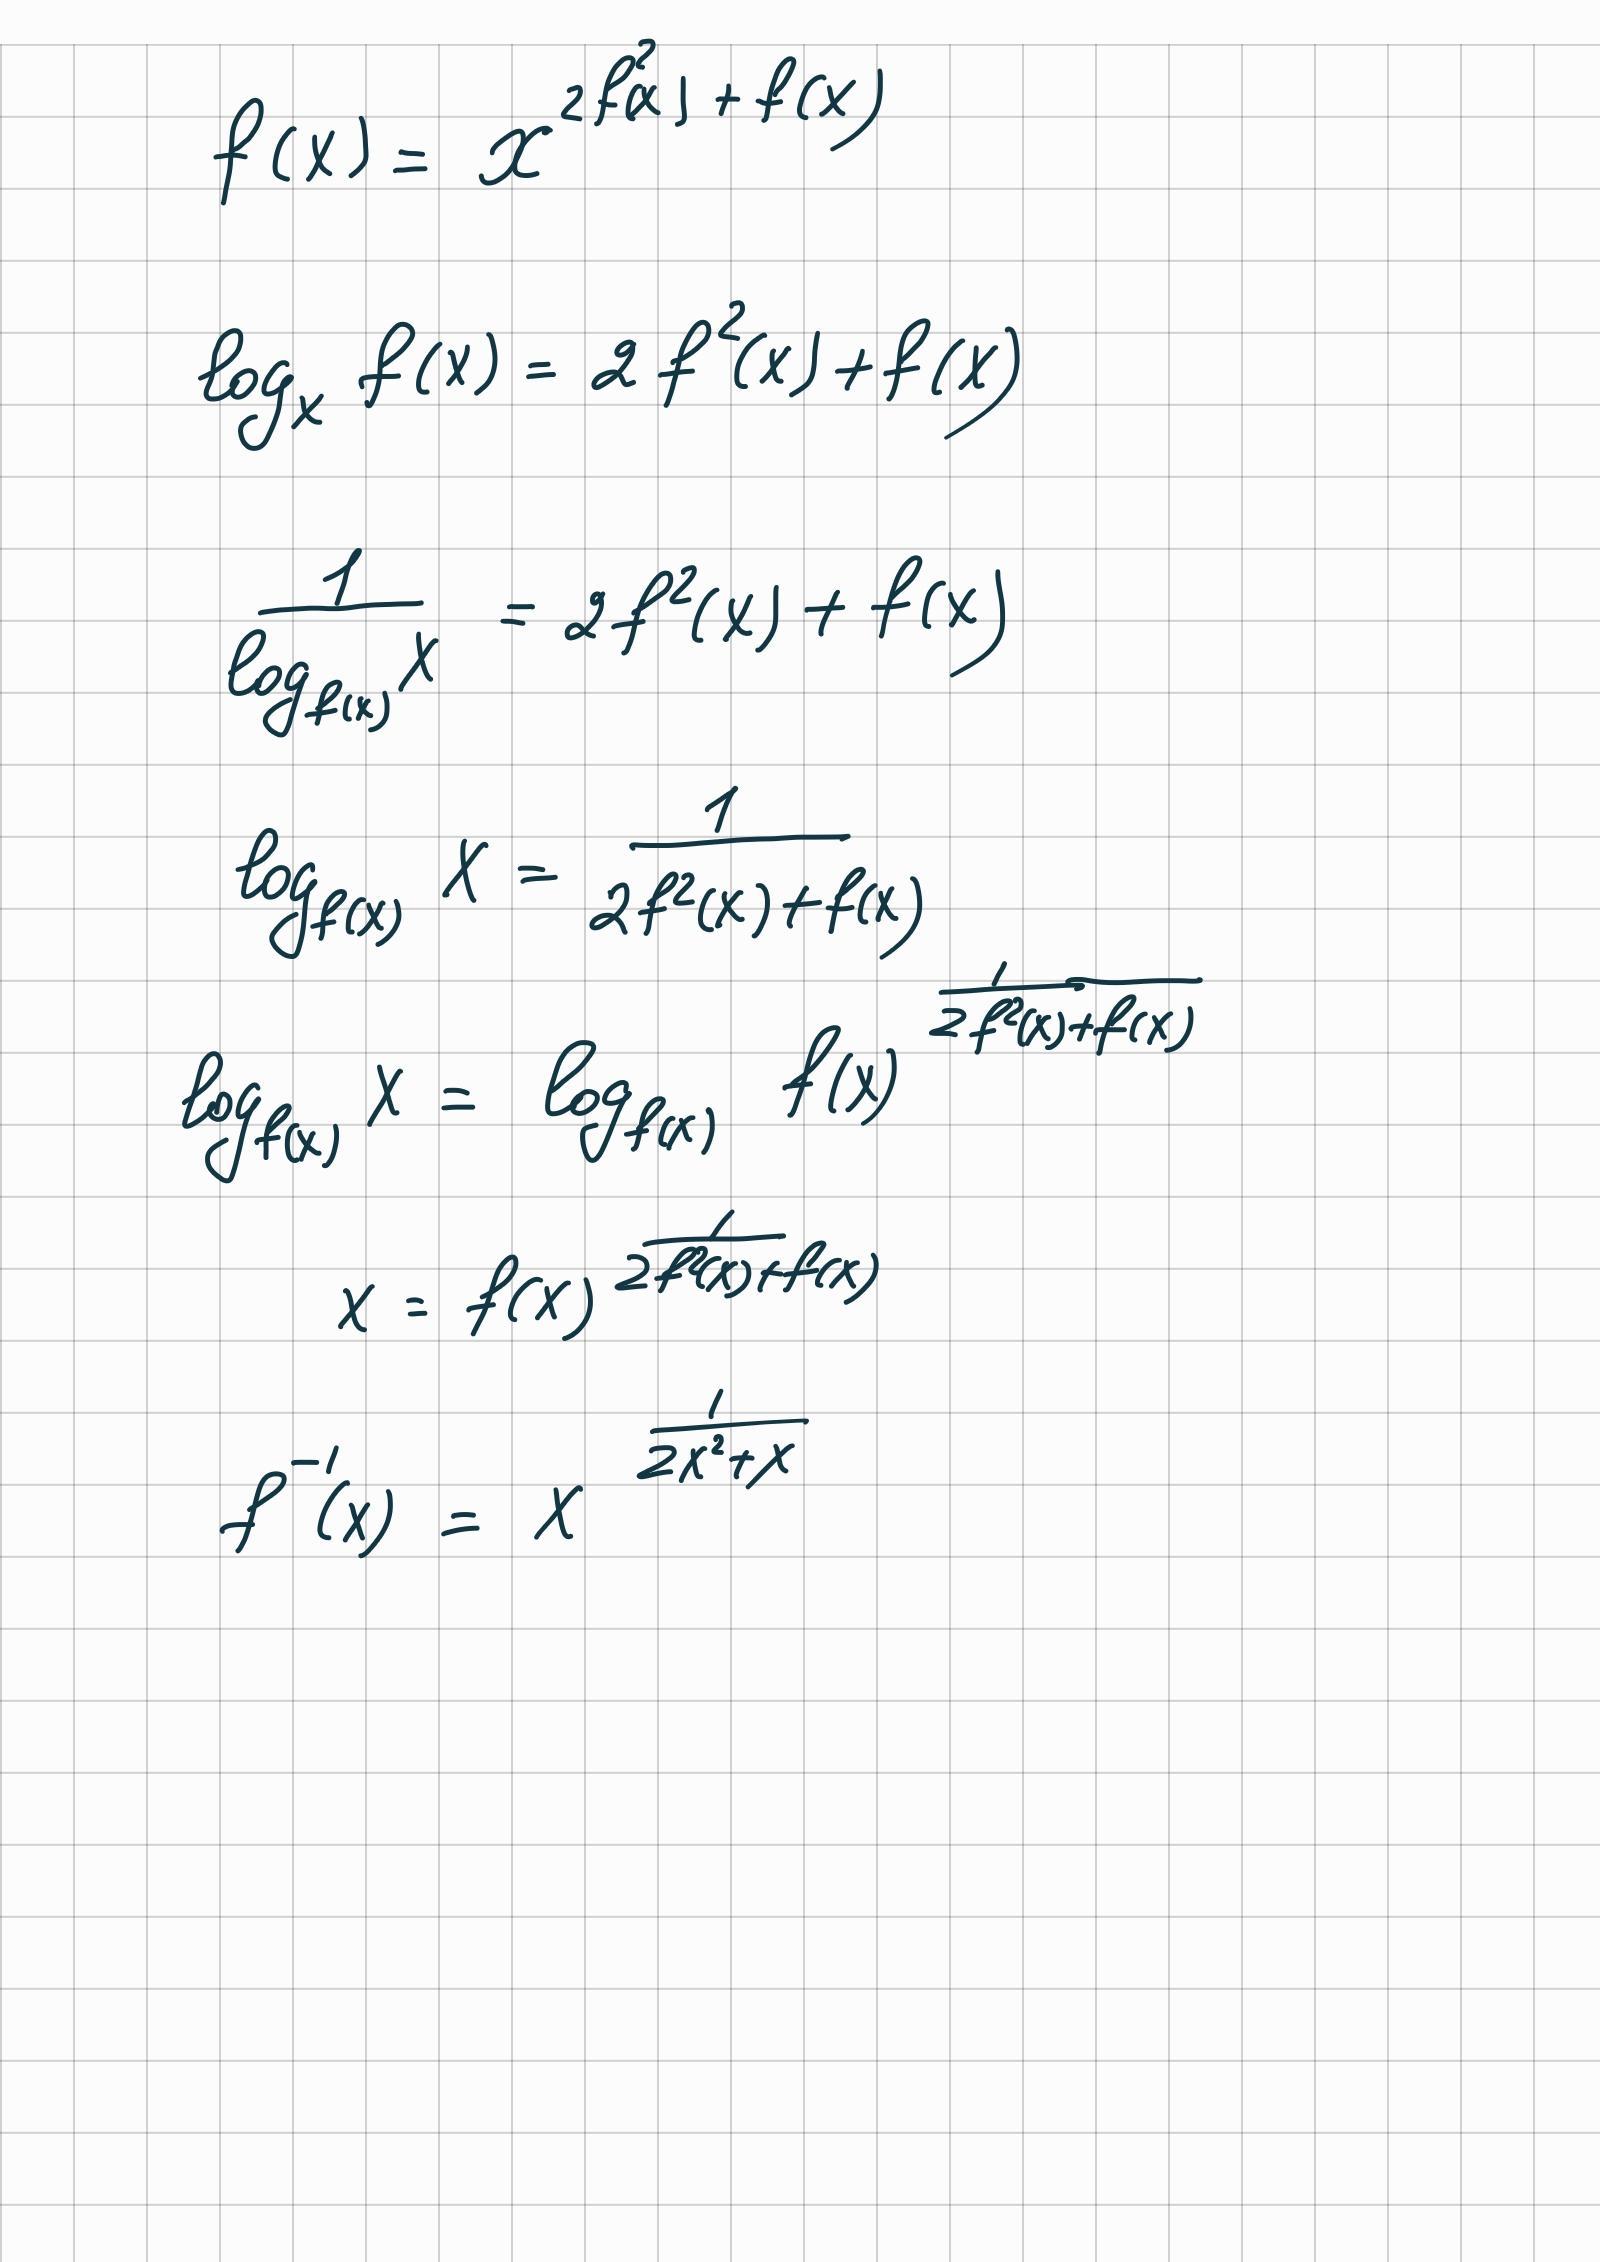 f(x) = x^{2f²(x) + f(x)}
log_x f(x) = 2f²(x) + f(x)
1/(log_{f(x)} x) = 2f²(x) + f(x)
log_{f(x)} x = 1/(2f²(x) + f(x))
log_{f(x)} x = log_{f(x)} f(x)^{1/(2f²(x)+f(x))}
x = f(x)^{1/(2f²(x)+f(x))}
f^{-1}(x) = x^{1/(2x²+x)}